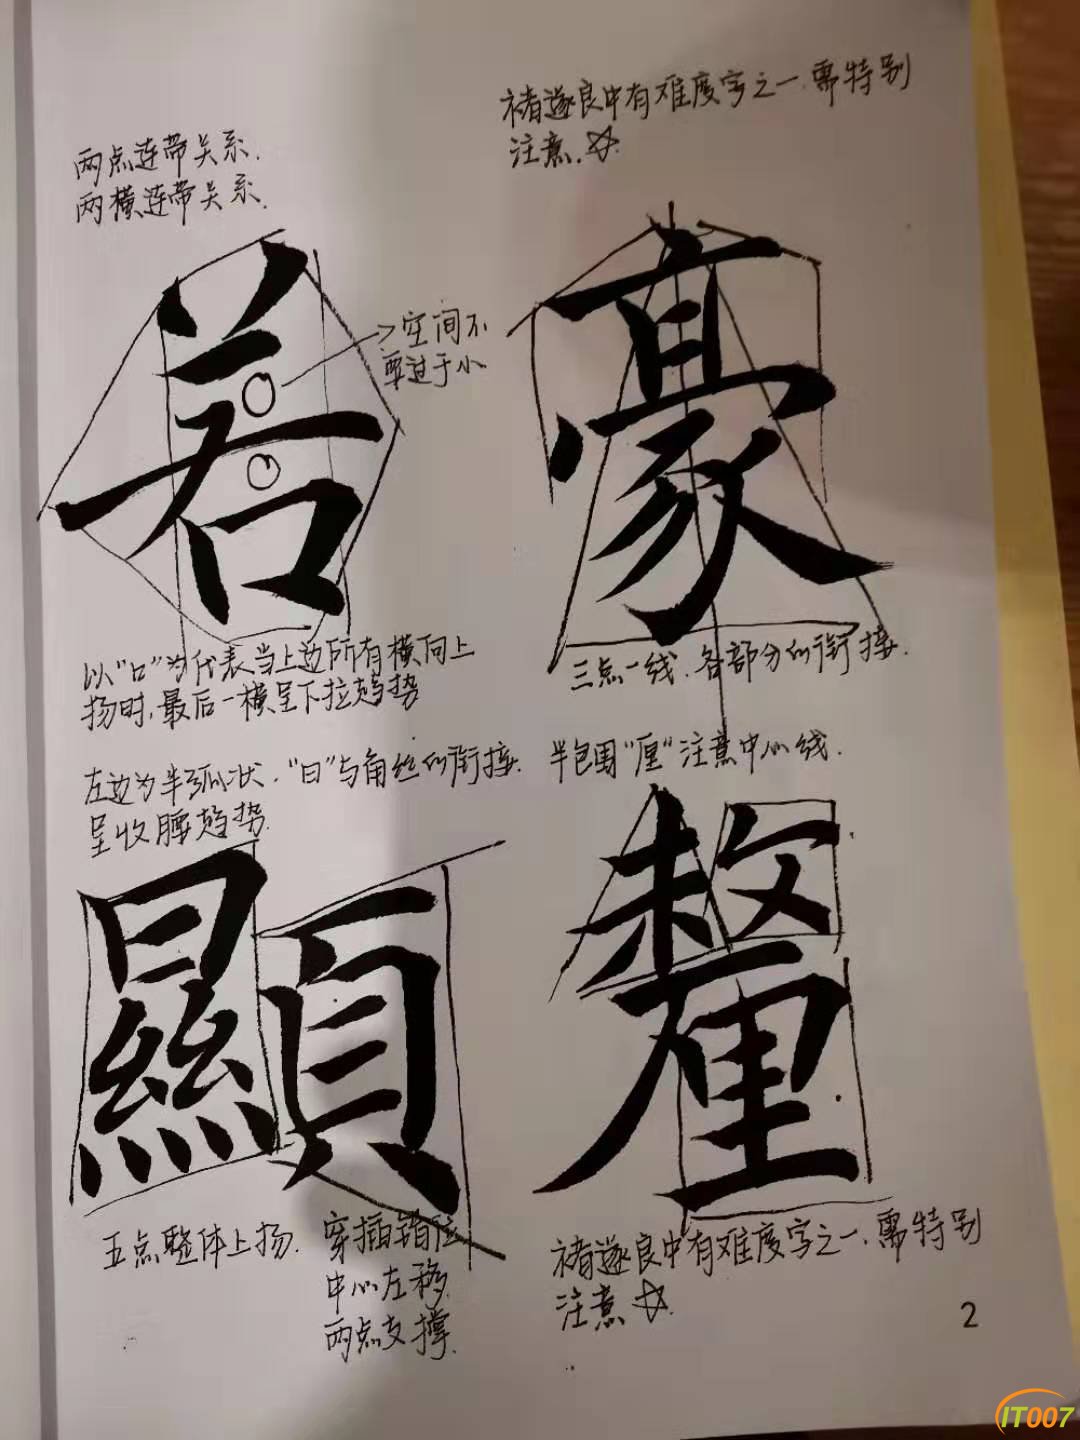 两点连带关系.
两横连带关系.
褚遂良中有难度字之一.需特别
注意.☆.
若
豪
空间不
要过于小
以"口"为代表当上边所有横向上
扬时,最后一横呈下拉趋势
三点一线.各部分的衔接.
左边为半弧状."日"与角丝的衔接.
呈收腰趋势.
半包围"厘"注意中心线.
顯
釐
五点整体上扬.
穿插错位
中心左移.
两点支撑.
褚遂良中有难度字之一.需特别
注意☆.
2
IT007